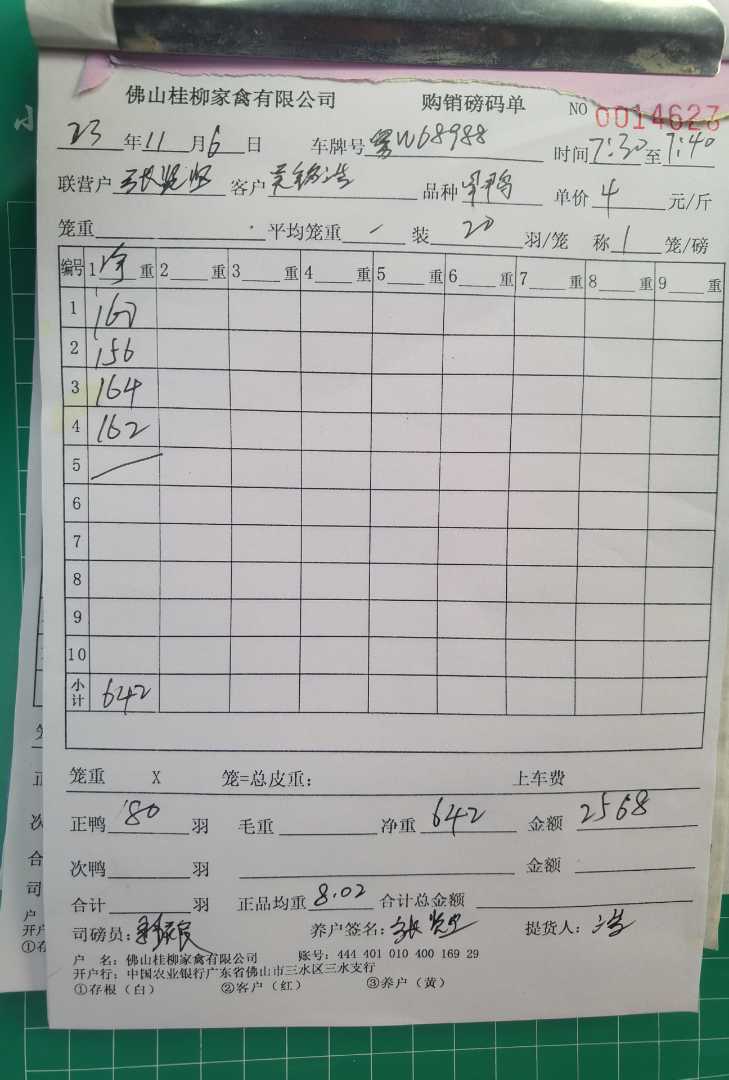 佛山桂柳家禽有限公司 购销磅码单 NO 0014623
23 年 11 月 6 日 车牌号 粤W68988 时间 7:30 至 7:40
联营户 客户 品种 单价 4 元/斤
笼重 平均笼重 / 装 20 羽/笼 称 1 笼/磅
编号 1 净 重 2 重 3 重 4 重 5 重 6 重 7 重 8 重 9 重
1 160
2 156
3 164
4 162
5
6
7
8
9
10
小计 642
笼重 X 笼=总皮重: 上车费
正鸭 80 羽 毛重 净重 642 金额 2568
次鸭 羽 金额
合计 羽 正品均重 8.02 合计总金额
司磅员: 养户签名: 提货人:
户 名: 佛山桂柳家禽有限公司 账号: 444 401 010 400 169 29
开户行: 中国农业银行广东省佛山市三水区三水支行
①存根(白) ②客户(红) ③养户(黄)